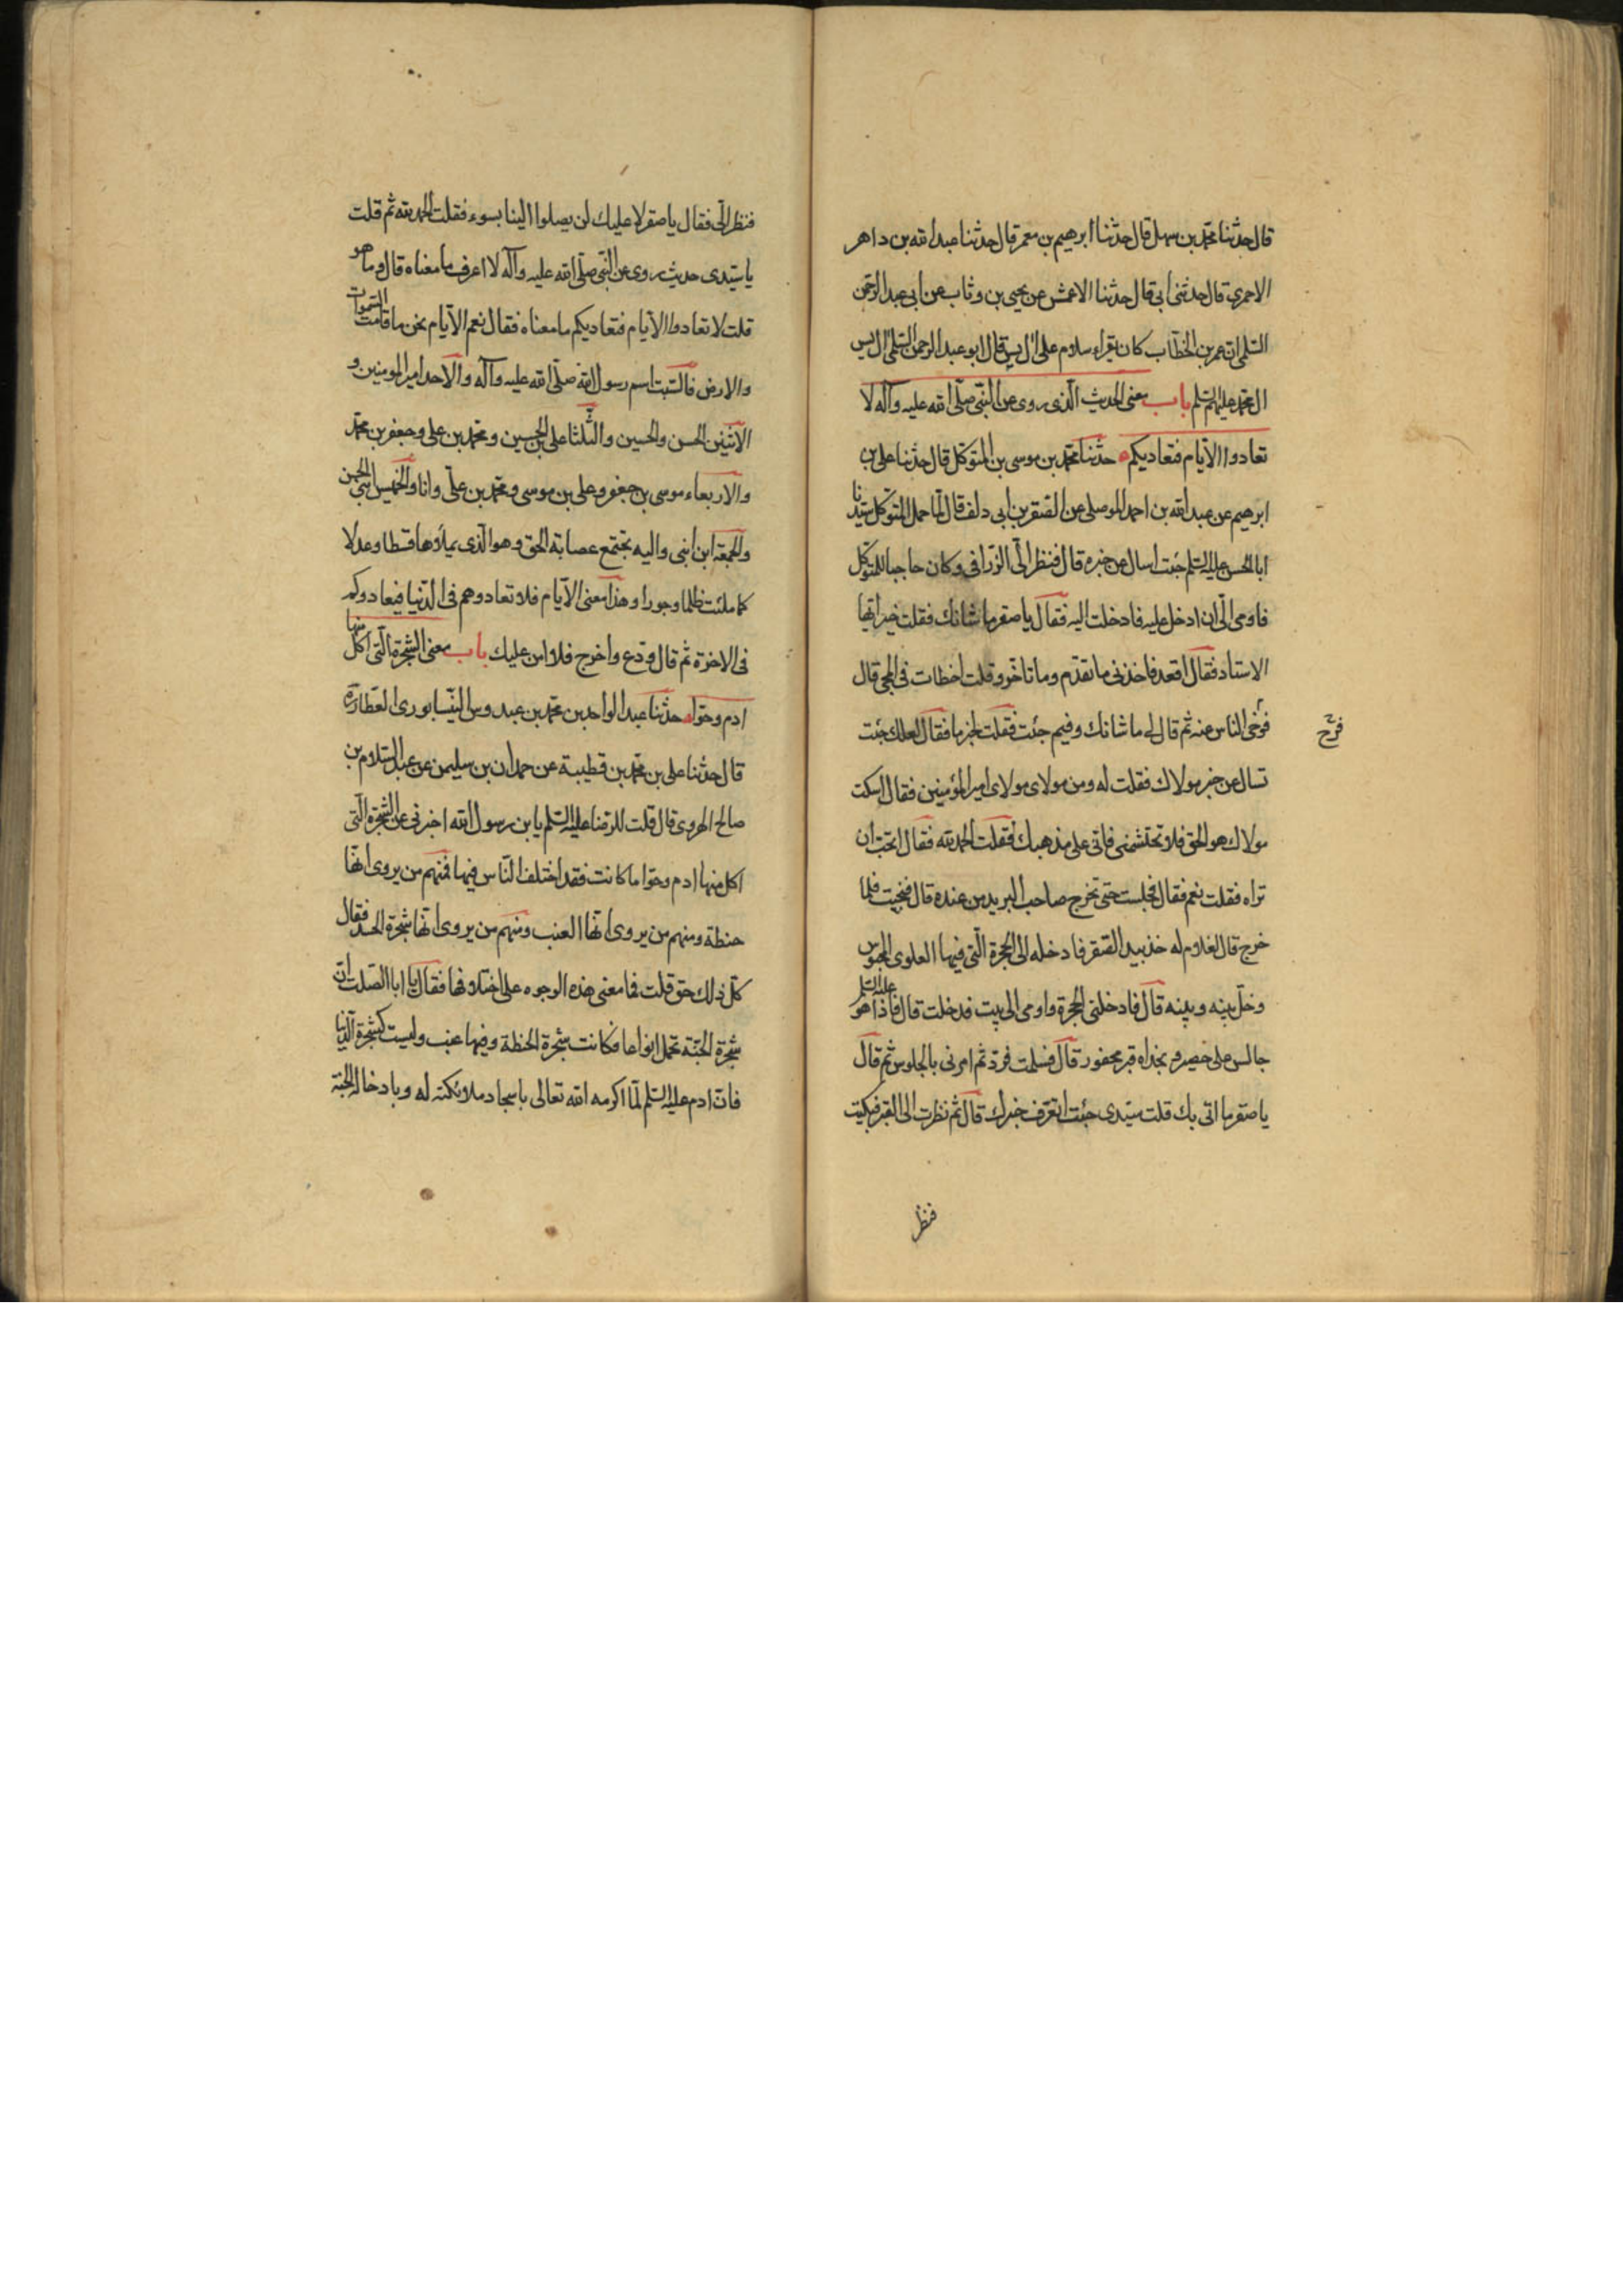 قال حدثنا محمد بن سهل قال حدثنا ابرهيم بن معمر قال حدثنا عبد الله بن داهر
الاحمري قال حدثني ابي قال حدثنا الاعمش عن يحيى بن وثاب عن ابي عبد الرحمن
السلمي ان عمر بن الخطاب كان يقراء سلام على ال يس قال ابو عبد الرحمن السلمي ال يس
ال محمد عليهم السلم باب معنى الحديث الذي روى عن النبي صلى الله عليه وآله لا
تعادوا الايام فتعاديكم حدثنا محمد بن موسى بن المتوكل قال حدثنا على بن
ابرهيم عن عبد الله بن احمد الموصلي عن الصقر بن ابي دلف قال لما حمل المتوكل سيدنا
ابا الحسن عليه السلم جئت اسال عن خبره قال فنظر الىّ الزرافي وكان حاجبا للمتوكل
فاومى الىّ ان ادخل عليه فادخلت اليه فقال يا صقر ما شانك فقلت خير ايها
الاستاد فقال اقعد فاخذني ما تقدم وما تاخر وقلت اخطات في المجي قال
فوحى الناس عنه ثم قال لي ما شانك وفيم جئت فقلت لخبر ما فقال لعلك جئت
تسال عن خبر مولاك فقلت له ومن مولاى مولاى امير المؤمنين فقال اسكت
مولاك هو الحق فلا تحتشمني فاني على مذهبك فقلت الحمد لله فقال اتحب ان
تراه فقلت نعم فقال فجلست حتى تخرج صاحب البريد من عنده قال فلما
خرج قال لغلام له خذ بيد الصقر فادخله الى الحجرة التي فيها العلوى المحبوس
وخلّ بينه وبينه قال فادخلني الحجرة واومى الى بيت فدخلت قال فاذا هو عليه السلم
جالس على حصير وبحذاه قبر محفور قال فسلمت فردّ ثم امرني بالجلوس ثم قال
يا صقر ما اتى بك قلت سيدى جئت اتعرف خبرك قال ثم نظرت الى القبر فبكيت
فنظر
فنظر الىّ فقال يا صقر لا عليك لن يصلوا الينا بسوء فقلت الحمد لله ثم قلت
يا سيدى حديث روى عن النبي صلى الله عليه وآله لا اعرف ما معناه قال وما هو
قلت لا تعادوا الايام فتعاديكم ما معناه فقال نعم الايام نحن ما قامت السموات
والارض فالسبت اسم رسول الله صلى الله عليه وآله والاحد امير المومنين و
الاثنين الحسن والحسين والثلثا على بن الحسين ومحمد بن على وجعفر بن محمد
والاربعاء موسى بن جعفر وعلى بن موسى ومحمد بن على وانا والخميس ابني الحسن
والجمعة ابن ابني واليه تجتمع عصابة الحق وهو الذى يملاؤها قسطا وعدلا
كما ملئت ظلما وجورا وهذا معنى الايام فلا تعادوهم في الدنيا فيعادوكم
في الاخرة ثم قال ودع واخرج فلا امن عليك باب معنى الشجرة التي اكل منها
ادم وحوا حدثنا عبد الواحد بن محمد بن عبدوس النيسابورى العطار ره
قال حدثنا على بن محمد بن قطيبة عن حمدان بن سليمن عن عبد السلام بن
صالح الهروى قال قلت للرضا عليه السلم يا بن رسول الله اخبرني عن الشجرة التي
اكل منها ادم وحوا ما كانت فقد اختلف الناس فيها فمنهم من يروى انها
حنطة ومنهم من يروى انها العنب ومنهم من يروى انها شجرة الحسد فقال
كل ذلك حق قلت فما معنى هذه الوجوه على اختلافها فقال يا ابا الصلت ان
شجرة الجنة تحمل انواعا فكانت شجرة الحنطة وفيها عنب وليست كشجرة الدنيا
فان ادم عليه السلم لما اكرمه الله تعالى باسجاد ملائكته له وبادخاله الجنة